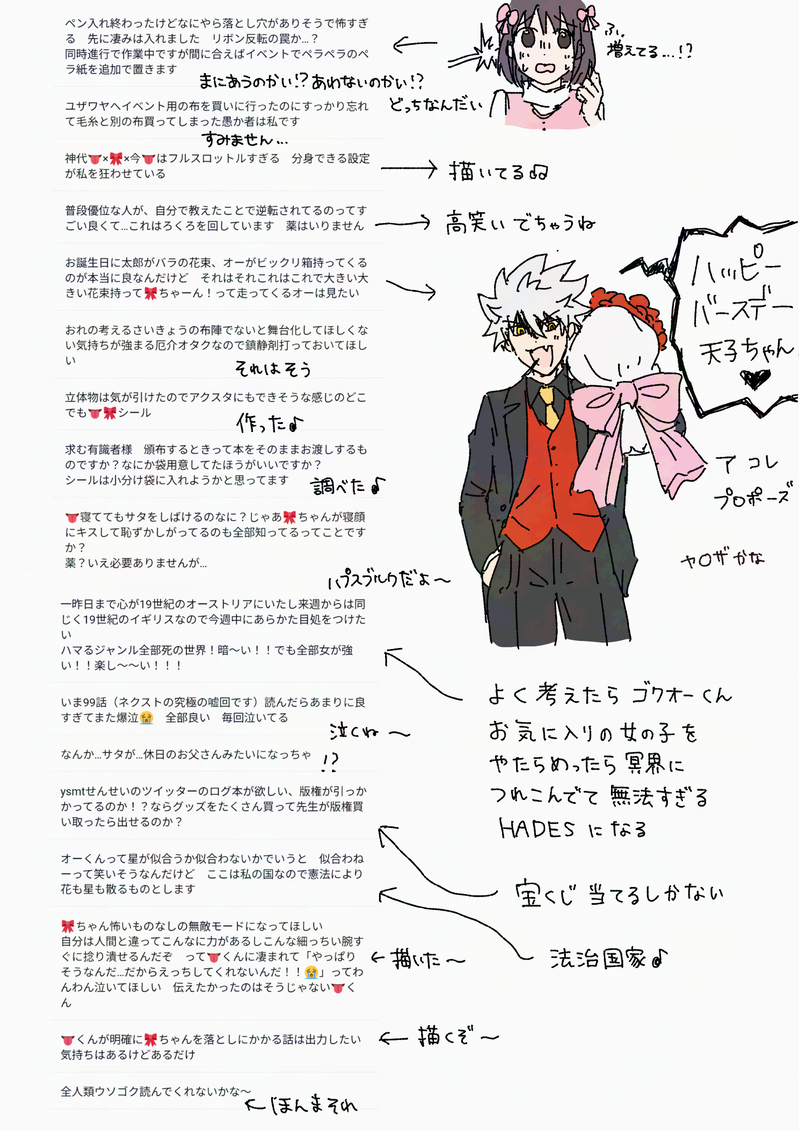 ペン入れ終わったけどなにやら落とし穴がありそうで怖すぎ
る　先に凄みは入れました　リボン反転の罠か…？
同時進行で作業中ですが間に合えばイベントでペラペラのペ
ラ紙を追加で置きます
ふ、
増えてる…!?
まにあうのかい!?あわないのかい!?
どっちなんだい
ユザワヤへイベント用の布を買いに行ったのにすっかり忘れ
て毛糸と別の布買ってしまった愚か者は私です
すみません…
神代👅×🎀×今👅はフルスロットルすぎる　分身できる設定
が私を狂わせている
描いてる♫
普段優位な人が、自分で教えたことで逆転されてるのってす
ごい良くて…これはろくろを回しています　薬はいりません
高笑いでちゃうね
お誕生日に太郎がバラの花束、オーがビックリ箱持ってくる
のが本当に良なんだけど　それはそれこれはこれで大きい大
きい花束持って🎀ちゃーん！って走ってくるオーは見たい
ハッピー
バースデー
天子ちゃん
♥
おれの考えるさいきょうの布陣でないと舞台化してほしくな
い気持ちが強まる厄介オタクなので鎮静剤打っておいてほし
い
それはそう
立体物は気が引けたのでアクスタにもできそうな感じのどこ
でも👅🎀シール
作った♪
求む有識者様　頒布するときって本をそのままお渡しするも
のですか？なにか袋用意してたほうがいいですか？
シールは小分け袋に入れようかと思ってます
調べた♪
ア コレ
プロポーズ
ヤ〇ザかな
👅寝ててもサタをしばけるのなに？じゃあ🎀ちゃんが寝顔
にキスして恥ずかしがってるのも全部知ってるってことです
か？
薬？いえ必要ありませんが…
ハプスブルクだよ〜
一昨日まで心が19世紀のオーストリアにいたし来週からは同
じく19世紀のイギリスなので今週中にあらかた目処をつけた
い
ハマるジャンル全部死の世界！暗〜い！！でも全部女が強
い！！楽し〜〜い！！！
よく考えたら ゴクオーくん
お気に入りの女の子を
やたらめったら冥界に
つれこんでて 無法すぎる
HADES になる
いま99話（ネクストの究極の嘘回です）読んだらあまりに良
すぎてまた爆泣😭　全部良い　毎回泣いてる
泣くね〜
なんか…サタが…休日のお父さんみたいになっちゃ
!?
ysmtせんせいのツイッターのログ本が欲しい、版権が引っか
かってるのか！？ならグッズをたくさん買って先生が版権買
い取ったら出せるのか？
宝くじ 当てるしかない
オーくんって星が似合うか似合わないかでいうと　似合わね
ーって笑いそうなんだけど　ここは私の国なので憲法により
花も星も散るものとします
法治国家♪
🎀ちゃん怖いものなしの無敵モードになってほしい
自分は人間と違ってこんなに力があるしこんな細っちい腕す
ぐに捻り潰せるんだぞ　って👅くんに凄まれて「やっぱり
そうなんだ…だからえっちしてくれないんだ！！😭」ってわ
んわん泣いてほしい　伝えたかったのはそうじゃない👅く
ん
描いた〜
👅くんが明確に🎀ちゃんを落としにかかる話は出力したい
気持ちはあるけどあるだけ
描くぞ〜
全人類ウソゴク読んでくれないかな〜
ほんまそれ